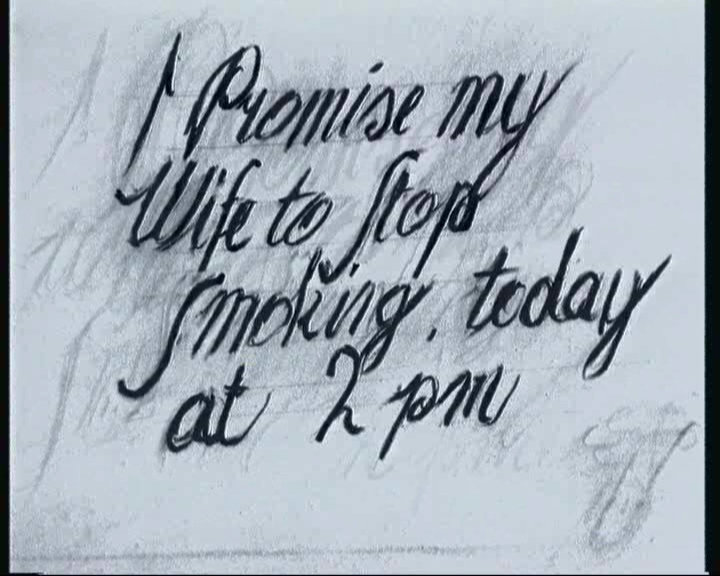 I Promise my
Wife to Stop
Smoking, today
at 2 pm